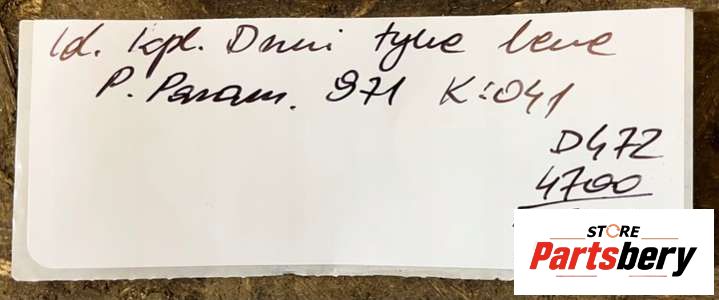 kpl. Drzwi tylne lewe
P. Panam. 971 K:041
D472
4700
STORE
Partsbery